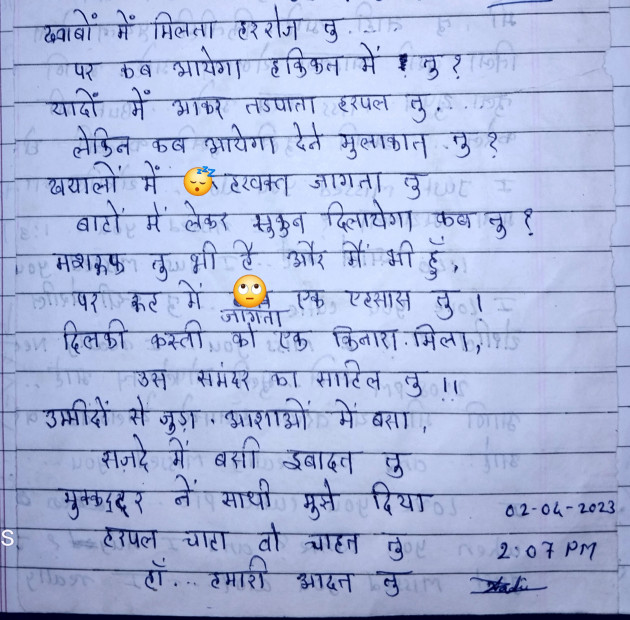 ख्वाबों में मिलता हररोज तु ....
पर कब आयेगा हकिकत में तु ?
यादों में आकर तडपाता हरपल तु ...
लेकिन कब आयेगा देने मुलाकात तु ?
खयालों में 😴 हरवक्त जागता तु
बाहों में लेकर सुकुन दिलायेगा कब तु ?
मशरूफ तु भी है और मैं भी हूँ,
पर रूह में 🙄 एक एहसास तु ।
जागता
दिलकी कस्ती को एक किनारा मिला,
उस समंदर का साहिल तु !!
उम्मींदों से जुड़ा आशाओं में बसा,
सज़दे में बसी इबादत तु
मुक्कद्दर नें साथी मुसे दिया
02-04-2023
S हरपल चाहा वो चाहत तु
2:07 PM
हाँ... हमारी आदत तु